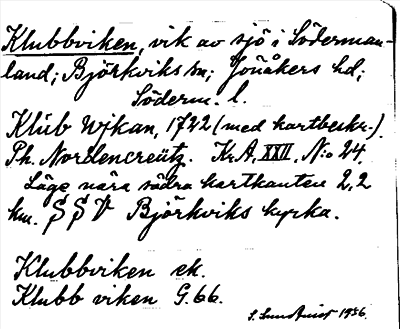 Klubbviken, vik av sjö i Söderman-
land; Björkviks sn; Jönåkers hd;
Söderm. l.
Klüb Wjkan, 1722 (med kartbeskr.)
Ph. Nordencreütz. Kr.A. XXII, N:o 24.
Läge nära södra kartkanten 2,2
km. SSV Björkviks kyrka.
Klubbviken ek.
Klubb viken G.66.
S. Lundqvist 1936.